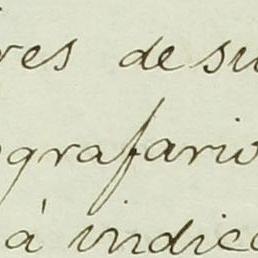 res de su
ografario
á indic